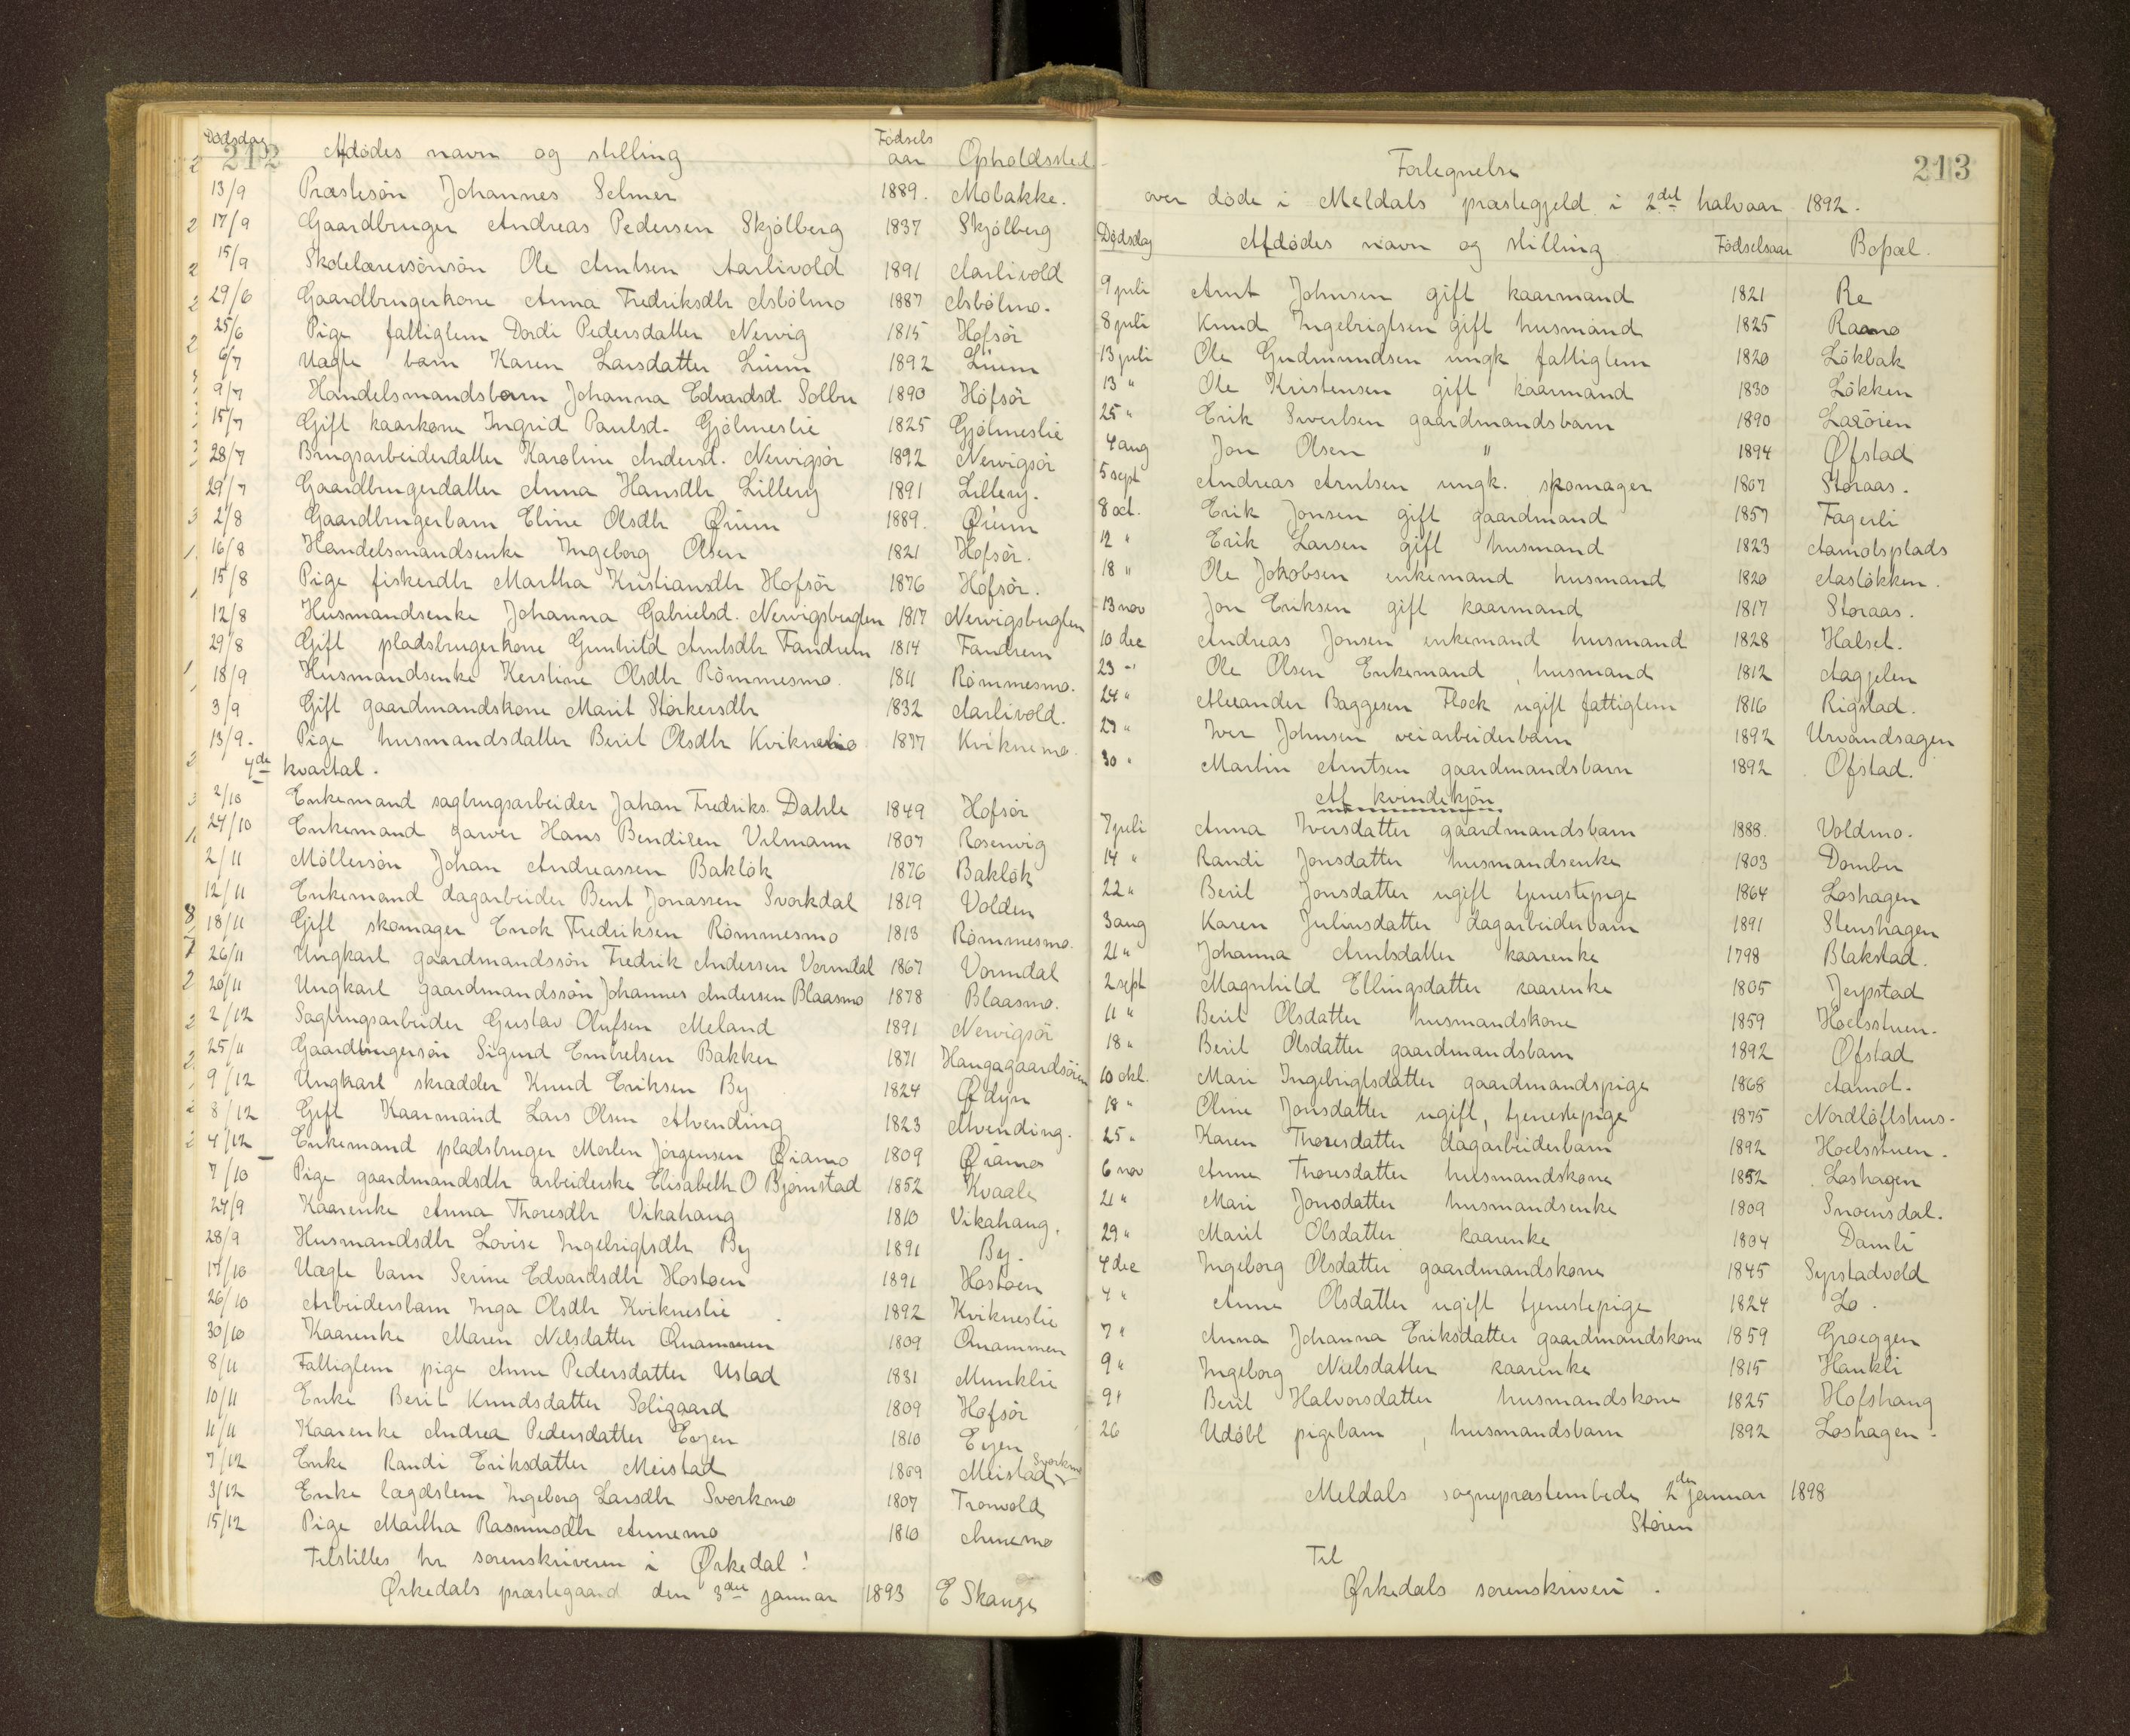 212
Dødsdag Afdødes navn og stilling Fødsels aar Opholdssted
13/9 Præstesön Johannes Selmer 1889. Mobakke.
17/9 Gaardbruger Andreas Pedersen Skjölberg 1837 Skjölberg
15/9 Skolelærersönsön Ole Arntsen Aarlivold 1891 Aarlivold
29/6 Gaardbrugerkone Anna Fredriksdtr Asbölmo 1887 Asbölmo.
25/6 Pige fattiglem Dordi Pedersdatter Nervig 1815 Hofsör
6/7 Uægte barn Karen Larsdatter Lium 1892 Lium
9/7 Handelsmandsbarn Johanna Edvardsd. Solbu 1890 Hofsör
15/7 Gift kaarkone Ingrid Paulsd. Gjölmeslie 1825 Gjölmeslie
28/7 Brugsarbeiderdatter Karoline Andersd. Nervigsör 1892 Nervigsör
29/7 Gaardbrugerdatter Anna Hansdtr Lillery 1891 Lillery.
2/8 Gaardbrugerbarn Eline Olsdtr Øium 1889. Øium
16/8 Handelsmandsenke Ingeborg Olsen 1821 Hofsör.
15/8 Pige fiskerdtr Martha Kristiansdtr Hofsör 1876 Hofsör.
12/8 Husmandsenke Johanna Gabrielsd. Nervigsbugten 1817 Nervigsbugten
29/8 Gift pladsbrugerkone Gunhild Arntsdtr Fandrem 1814 Fandrem
18/9 Husmandsenke Kerstine Olsdtr Römmesmo. 1811 Römmesmo.
3/9 Gift gaardmandskone Marit Störkersdtr 1832 Aarlivold.
13/9. Pige husmandsdatter Berit Olsdtr Kviknemo 1877 Kviknemo
4de kvartal.
2/10 Enkemand sagbrugsarbeider Johan Fredriks. Dahle 1849 Hofsör
24/10 Enkemand garver Hans Bendixen Vilmann 1807 Rosenvig
2/11 Möllersön Johan Andreassen Baklök 1876 Baklök
12/11 Enkemand dagarbeider Bent Jonassen Svorkdal 1819 Volden
18/11 Gift skomager Enok Fredriksen Römmesmo 1813 Römmesmo.
26/11 Ungkarl gaardmandssön Fredrik Andersen Vormdal 1867 Vormdal
20/11 Ungkarl gaardmandssön Johannes Andersen Blaasmo 1878 Blaasmo.
2/12 Sagbrugsarbeider Gustav Olufsen Meland 1891 Nervigsör
25/11 Gaardbrugersön Sigurd Embretsen Bakken 1871 Haugagaardsöien
9/12 Ungkarl skrædder Knud Eriksen By 1824 Ødyn
8/12 Gift Kaarmand Lars Olsen Alvending 1823 Alvending.
4/12 Enkemand pladsbruger Morten Jörgensen Øiamo 1809 Øiamo
7/10 Pige gaardmandsdtr arbeiderske Elisabeth O Bjørnstad 1852 Kvaale
24/9 Kaarenke Anna Thoresdtr Vikahaug 1810 Vikahaug.
28/9 Husmandsdtr Lovise Ingebrigtsdtr By 1891 By.
17/10 Uægte barn Serine Edvardsdtr Hostoen 1891 Hostoen
26/10 Arbeidersbarn Inga Olsdtr Kvikneslie 1892 Kvikneslie
30/10 Kaarenke Maren Nilsdatter Qvammen 1809 Qvammen
8/11 Fattiglem pige Anne Pedersdatter Ustad 1831 Munklie
10/11 Enke Berit Knudsdatter Soligaard 1809 Hofsör
11/11 Kaarenke Andrea Pedersdatter Evjen 1810 Evjen
7/12 Enke Randi Eriksdatter Meistad 1809 Meistad Svorkmo
3/12 Enke lægdslem Ingeborg Larsdtr Svorkmo 1807 Tronvold
15/12 Pige Martha Rasmusdtr Annemo 1810 Annemo
Tilstilles hr sorenskriveren i Ørkedal!
Ørkedals præstegaard den 3die januar 1893 E Skauge
213
Fortegnelse
over döde i Meldals præstegjeld i 2det halvaar 1892.
Dødsdag Afdödes navn og stilling Födselsaar Bopæl.
9 juli Arnt Johnsen gift kaarmand 1821 Re
8 juli Knud Ingebrigtsen gift husmand 1825 Raamo
13 juli Ole Gudmundsen ungk. fattiglem 1820 Lökbak
13 " Ole Kristensen gift kaarmand 1830 Lökken
25 " Erik Sivertsen gaardmandsbarn 1890
4 aug Jon Olsen " 1894 Øfstad
5 sept Andreas Arntsen ungk. skomager 1867 Storaas.
8 oct. Erik Jonsen gift gaardmand 1857 Fagerli
12 " Erik Larsen gift husmand 1823 Aamotsplads
18 " Ole Jakobsen enkemand husmand 1820 Aaslökken.
13 nov Jon Eriksen gift kaarmand 1817 Storaas.
10 dec Andreas Jonsen enkemand husmand 1828 Halset.
23 " Ole Olsen Enkemand, husmand 1812 Aagjelen
24 " Alexander Baggesen Flock ugift fattiglem 1816 Rigstad.
29 " Iver Johnsen veiarbeiderbarn 1892 Urvandsagen
30 " Martin Arntsen gaardmandsbarn 1892 Öfstad.
Af kvindekjön
7 juli Anna Iversdatter gaardmandsbarn 1888. Voldmo.
14 " Randi Jonsdatter husmandsenke 1803 Dombu
22 " Berit Jonsdatter ugift tjenestepige 1864 Loshagen
3 aug Karen Juliusdatter dagarbeiderbarn 1891 Stenshagen
21 " Johanna Arntsdatter kaarenke 1798 Blakstad.
2 sept Magnhild Ellingsdatter kaarenke 1805 Jerpstad
11 " Berit Olsdatter husmandskone 1859 Hoelsstuen.
18 " Berit Olsdatter gaardmandsbarn 1892 Øfstad
10 okt. Mari Ingebrigtsdatter gaardmandspige 1868 Aamot.
18 " Oline Jonsdatter ugift, tjenestepige 1875 Nordlöftshus.
25 " Karen Thoresdatter dagarbeiderbarn 1892 Hoelsstuen.
6 nov Anne Thoresdatter husmandskone 1852 Loshagen
21 " Mari Jonsdatter husmandsenke 1809 Snoensdal.
29 " Marit Olsdatter kaarenke 1804 Damli
4 dec Ingeborg Olsdatter gaardmandskone 1845 Syrstadvold
4 " Anne Olsdatter ugift tjenestepige 1824 Lo.
7 " Anna Johanna Eriksdatter gaardmandskone 1859 Groeggen
9 " Ingeborg Nielsdatter kaarenke 1815 Haukli
9 " Berit Halvorsdatter husmandskone 1825 Hofshaug
26 Udöbt pigebarn, husmandsbarn 1892 Loshagen.
Meldals sogneprestembede 2den januar 1898
Støren
Til
Ørkedals sorenskriveri.